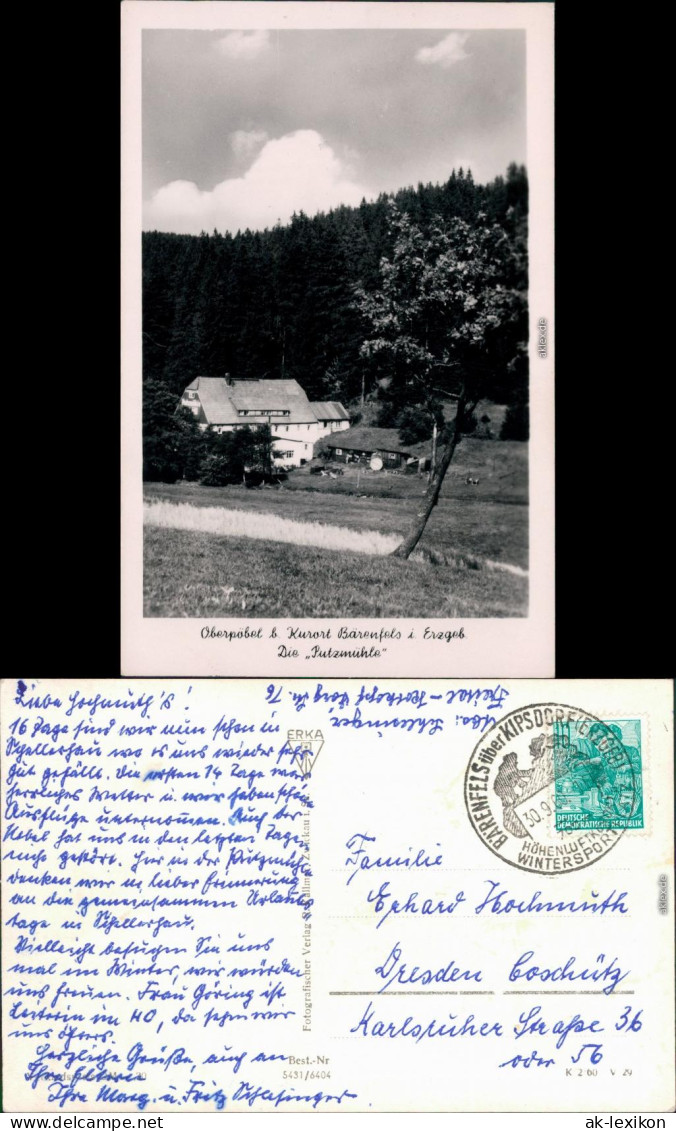 aklex.de
Oberpöbel b. Kurort Bärenfels i. Erzgeb.
Die „Putzmühle"
Liebe Hochmuth's!
16 Tage sind wir nun schon in
Schellerhau wo es uns wieder sehr
gut gefällt. Die ersten 14 Tage war
herrliches Wetter u. wir haben schöne
Ausflüge unternommen. Auch der
Nebel hat uns in den letzten Tagen
nicht gestört. Hier in der Putzmühle
denken wir in lieber Erinnerung
an die gemeinsamen Urlaubs
tage in Schellerhau.
Vielleicht besuchen Sie uns
mal im Winter, wir würden
uns freuen. Frau Göring ist
Leiterin im HO, da sehen wir
uns öfters.
Herzliche Grüße, auch an
Ihre Eltern
Ihre Marg. u. Fritz Schlesinger
Abs: Schlesinger,
Freital
76
ERKA
Fotografischer Verlag
Zwickau i. Sa.
Best.-Nr
5431/6404
BÄRENFELS über KIPSDORF (ERZGEB)
30.9.
HÖHENLUFTK
WINTERSPORT
DEUTSCHE
DEMOKRATISCHE REPUBLIK
Familie
Erhard Hochmuth
Dresden Coschütz
Karlsruher Straße 36
oder 56
K 2 60 V 29
aklex.de
ak-lexikon